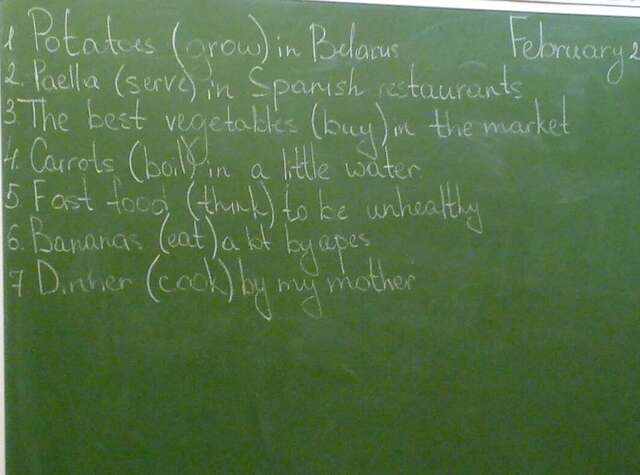 1 Potatoes (grow) in Belarus
February 2
2. Paella (serve) in Spanish restaurants
3. The best vegetables (buy) in the market
4. Carrots (boil) in a little water
5. Fast food (think) to be unhealthy
6. Bananas (eat) a lot by apes
7 Dinner (cook) by my mother